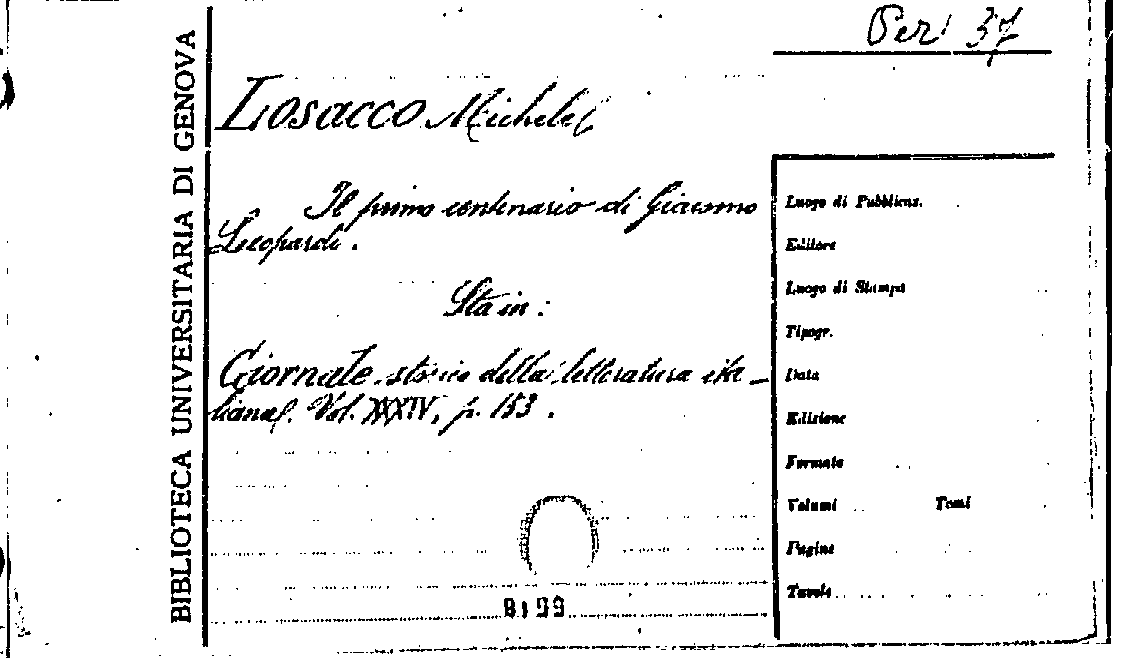 BIBLIOTECA UNIVERSITARIA DI GENOVA
Per 37
LOSACCO Michele
Il primo centenario di Giacomo
Leopardi.
Sta in:
Giornale storico della letteratura ita-
liana. Vol. XXXIV, p. 153.
Luogo di Pubblicaz.
Editore
Luogo di Stampa
Tipogr.
Data
Edizione
Formato
Volumi Tomi
Pagine
Tavole